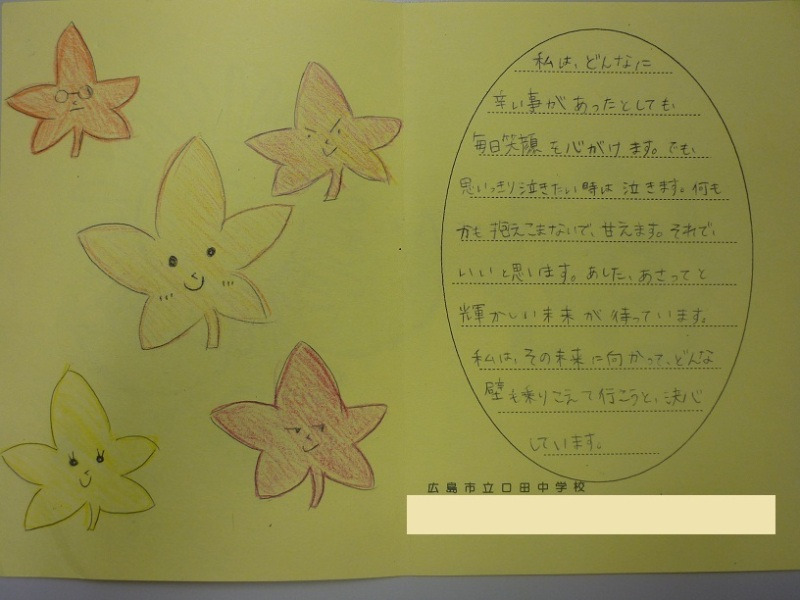 私は、どんなに
辛い事があったとしても
毎日笑顔を心がけます。でも、
思いっきり泣きたい時は泣きます。何も
かも抱えこまないで、甘えます。それで、
いいと思います。あした、あさってと
輝かしい未来が待っています。
私は、その未来に向かって、どんな
壁も乗りこえて行こうと、決心
しています。
広島市立口田中学校